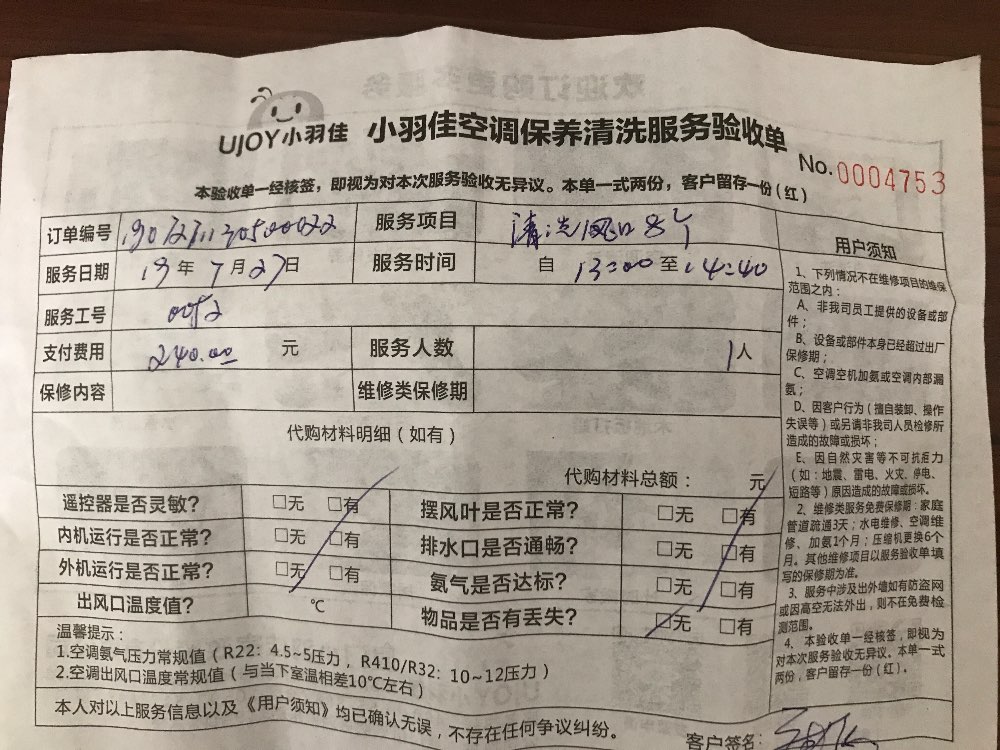 UJOY小羽佳 小羽佳空调保养清洗服务验收单
No.0004753
本验收单一经核签，即视为对本次服务验收无异议。本单一式两份，客户留存一份（红）
订单编号 服务项目 清洗风口8个
服务日期 19年7月27日 服务时间 自 13:00 至 14:40
服务工号 0052
支付费用 240.00 元 服务人数 1人
保修内容 维修类保修期
代购材料明细（如有）
代购材料总额： 元
遥控器是否灵敏？ □无 □有 摆风叶是否正常？ □无 □有
内机运行是否正常？ □无 □有 排水口是否通畅？ □无 □有
外机运行是否正常？ □无 □有 氨气是否达标？ □无 □有
出风口温度值？ ℃ 物品是否有丢失？ □无 □有
温馨提示：
1.空调氨气压力常规值（R22：4.5~5压力，R410/R32：10~12压力）
2.空调出风口温度常规值（与当下室温相差10℃左右）
本人对以上服务信息以及《用户须知》均已确认无误，不存在任何争议纠纷。
客户签名：
用户须知
1、下列情况不在维修项目的维保
范围之内：
A、非我司员工提供的设备或部
件；
B、设备或部件本身已经超过出厂
保修期；
C、空调空机加氨或空调内部漏
氨；
D、因客户行为（擅自装卸、操作
失误等）或另请非我司人员检修所
造成的故障或损坏；
E、因自然灾害等不可抗拒力
（如：地震、雷电、火灾、停电、
短路等）原因造成的故障或损坏。
2、维修类服务免费保修期：家庭
管道疏通3天；水电维修、空调维
修、加氨1个月；压缩机更换6个
月。其他维修项目以服务验收单填
写的保修期为准。
3、服务中涉及出外墙如有防盗网
或因高空无法外出，则不在免费检
测范围。
4、本验收单一经核签，即视为
对本次服务验收无异议。本单一式
两份，客户留存一份（红）。